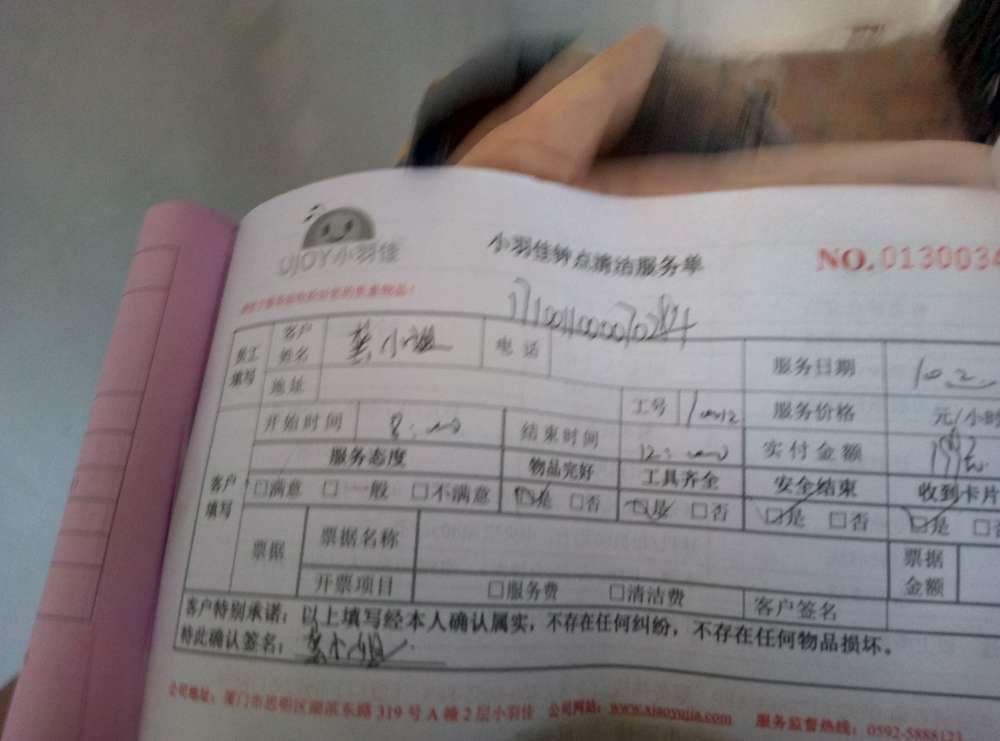 UJOY小羽佳
小羽佳钟点清洁服务单
NO. 0130034
员工填写 客户姓名 小姐 电话 服务日期 10.2
地址 工号 服务价格 元/小时
客户填写 开始时间 8:00 结束时间 12:00 实付金额
服务态度 物品完好 工具齐全 安全结束 收到卡片
□满意 □一般 □不满意 □是 □否 □是 □否 □是 □否 □是
票据 票据名称 票据金额
开票项目 □服务费 □清洁费 客户签名
客户特别承诺：以上填写经本人确认属实，不存在任何纠纷，不存在任何物品损坏。
特此确认签名： 小姐
公司地址：厦门市思明区湖滨东路 319 号 A 幢 2 层小羽佳 公司网站：www.xiaoyujia.com 服务监督热线：0592-5888123